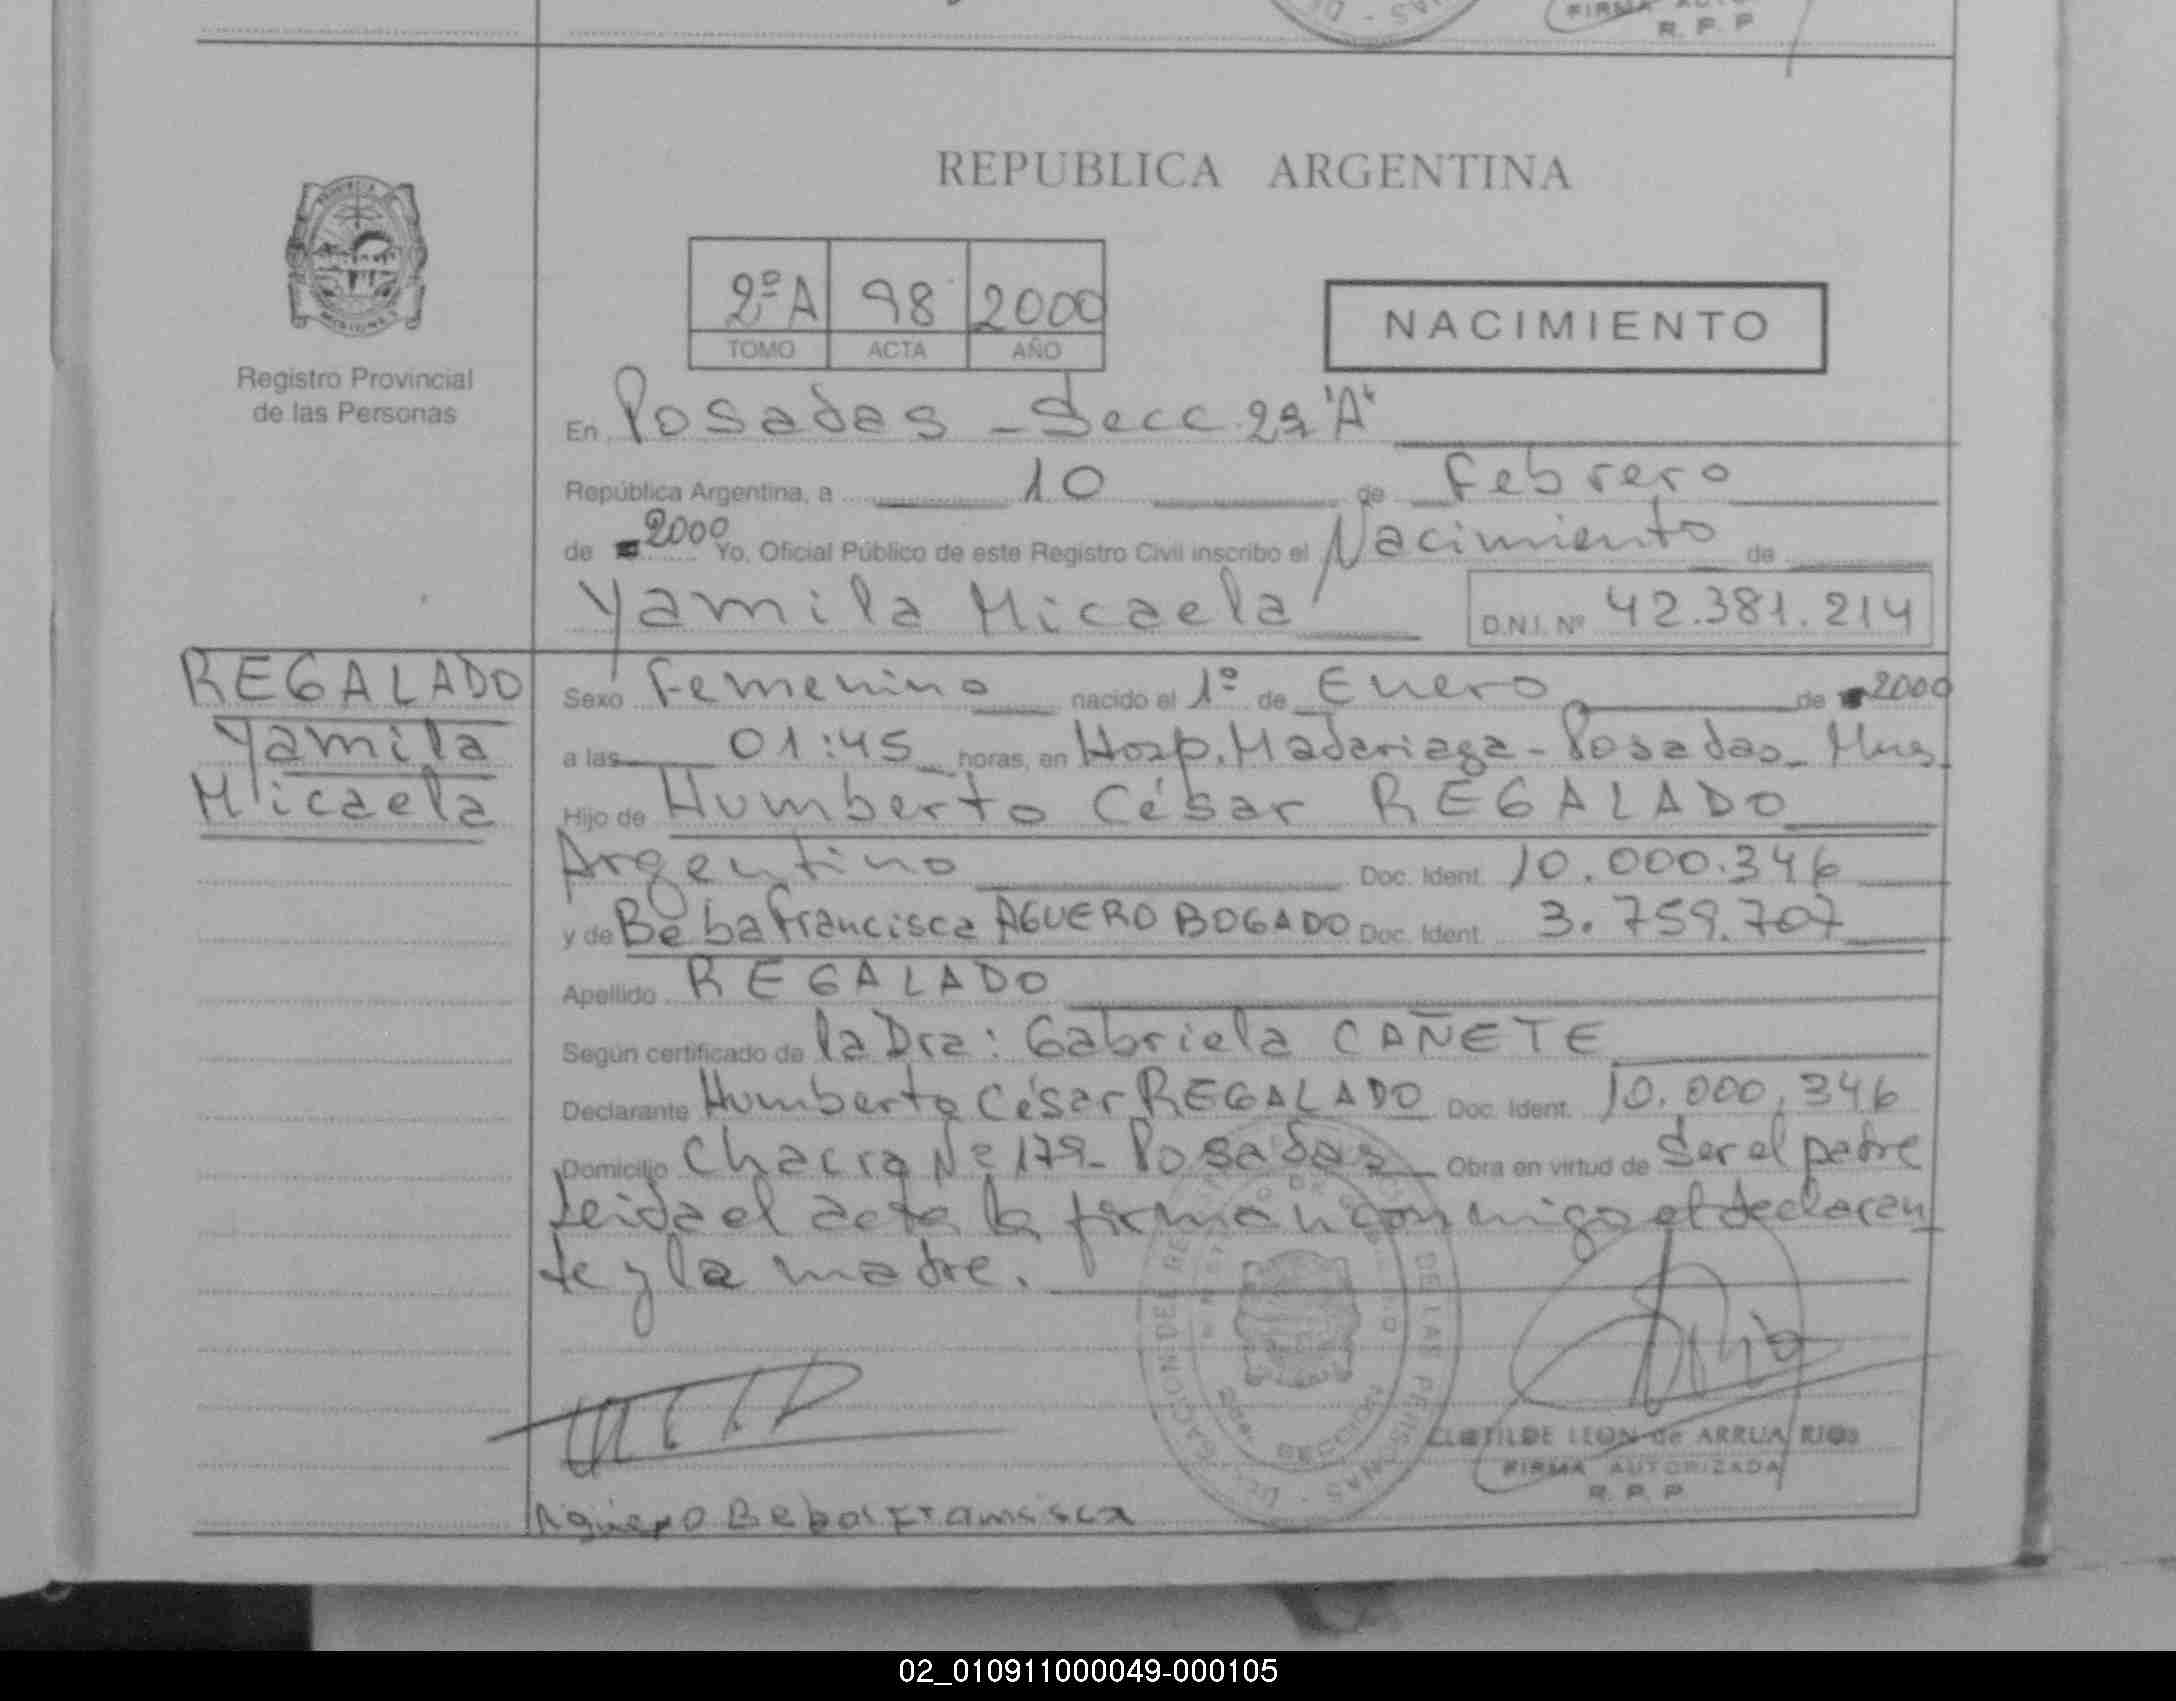 FIRMA
R. P. P
REPUBLICA ARGENTINA
2ºA 98 2000
TOMO ACTA AÑO
NACIMIENTO
Registro Provincial
de las Personas
En Posadas - Secc. 2ª "A"
República Argentina, a 10 de Febrero
de 2000 Yo, Oficial Público de este Registro Civil inscribo el Nacimiento de
Yamila Micaela D.N.I. Nº 42.381.214
REGALADO
Yamila
Micaela
Sexo Femenino nacido el 1º de Enero de 2000
a las 01:45 horas, en Hosp. Madariaga - Posadas - Mnes.
Hijo de Humberto César REGALADO
Argentino Doc. Ident. 10.000.346
y de Beba Francisca AGUERO BOGADO Doc. Ident. 3.759.707
Apellido REGALADO
Según certificado de la Dra: Gabriela CAÑETE
Declarante Humberto César REGALADO Doc. Ident. 10.000.346
Domicilio Chacra Nº 179 - Posadas Obra en virtud de Ser el padre
Leida el acta la firman conmigo el declaran
te y la madre.
DELEGACION DEL REGISTRO DE LAS PERSONAS
CLOTILDE LEON de ARRUA RIOS
FIRMA AUTORIZADA
R. P. P
Aguero Beba Fransisca
02_010911000049-000105